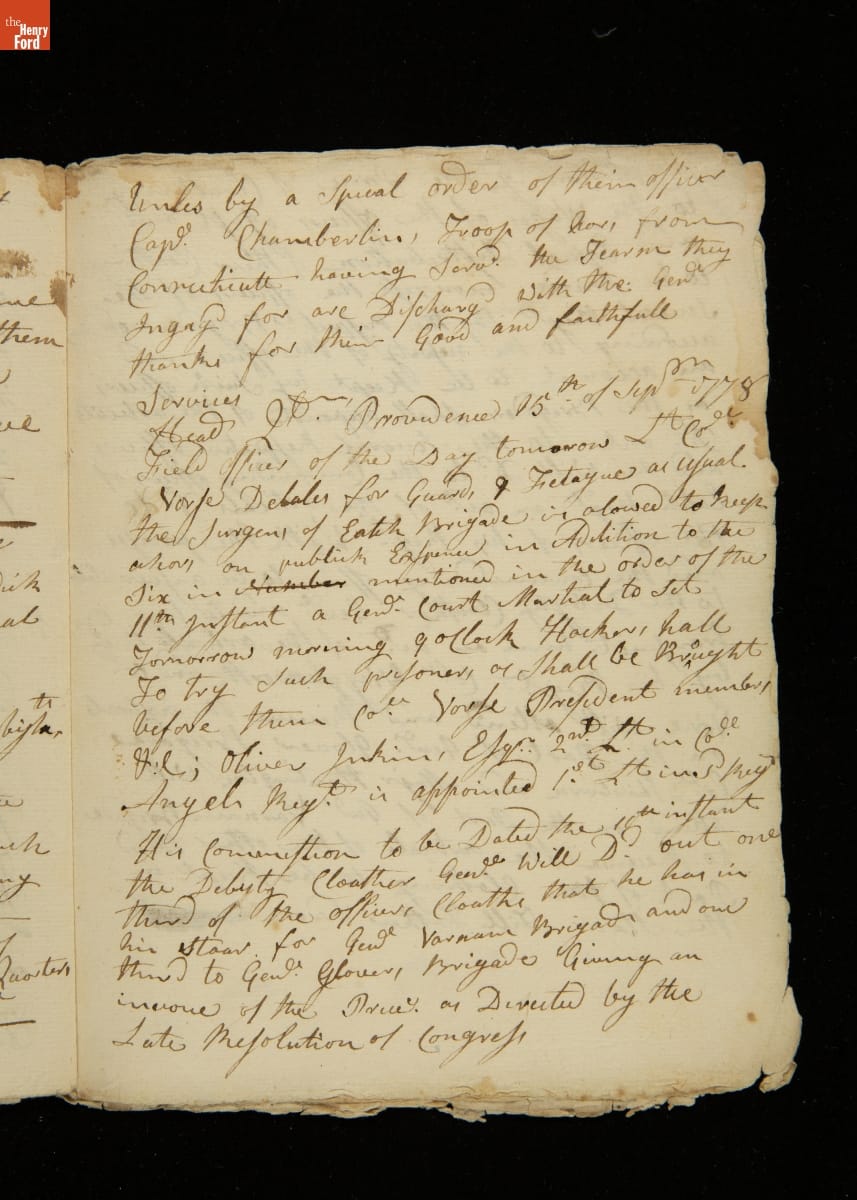 the
Henry
Ford
Unles by a Speual order of their officer
Capt. Chamberlins Troop of hors from
Connecticutt having Servd. the Tearm they
Ingagd for are Dischargd with the Genl
thanks for their Good and faithfull
Services
Head Qtr. Providence 15th of Sepbr 1778
Field officer of the Day tomorow Lt Col.
Vorse Detales for Guards & Fetague as usual
the Surgens of Eatch Brigade is alowed to keep
ahors on publick Expence in Addition to the
Six in Number mentioned in the order of the
11th Instant a Genl. Court Martial to Set
Tomorrow morning 9 oClock Hackers hall
To try Such prisoners as Shall be Brought
before them Col. Vorse President members
&c; Oliver Jnkins Esqr. 2nd Lt in Col.
Angels Regt. is appointed 1st Lt in sd Regt
His Commesstion to be Dated the 11th instant
the Debuty Cloather Genl. Will Dd out one
third of the officers Cloaths that he has in
his Stoar for Genl Varnum Brigade and one
third to Genl. Glovers Brigade Giving an
invoue of the Prices. as Directed by the
Late Resolution of Congress
them
Quarters